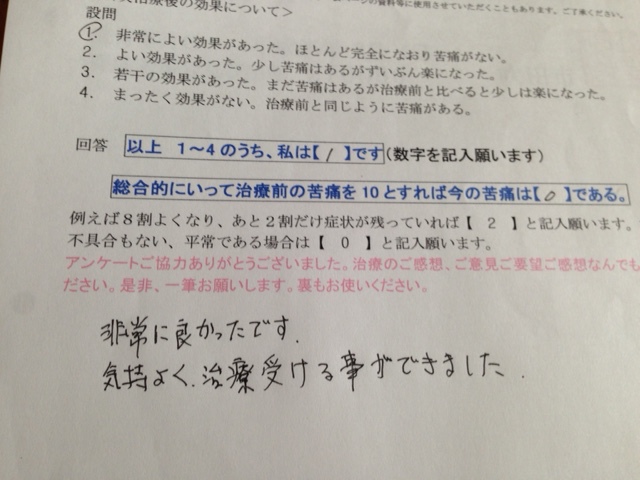 治療後の効果について＞
ページの資料等に使用させていただくこともあります。ご了承ください。
設問
1. 非常によい効果があった。ほとんど完全になおり苦痛がない。
2. よい効果があった。少し苦痛はあるがずいぶん楽になった。
3. 若干の効果があった。まだ苦痛はあるが治療前と比べると少しは楽になった。
4. まったく効果がない。治療前と同じように苦痛がある。
回答 以上 1～4のうち、私は【 1 】です(数字を記入願います)
総合的にいって治療前の苦痛を10とすれば今の苦痛は【 0 】である。
例えば８割よくなり、あと２割だけ症状が残っていれば【 ２ 】と記入願います。
不具合もない、平常である場合は【 ０ 】と記入願います。
アンケートご協力ありがとうございました。治療のご感想、ご意見ご要望ご感想なんでも
ださい。是非、一筆お願いします。裏もお使いください。
非常に良かったです.
気持よく.治療受ける事ができました.